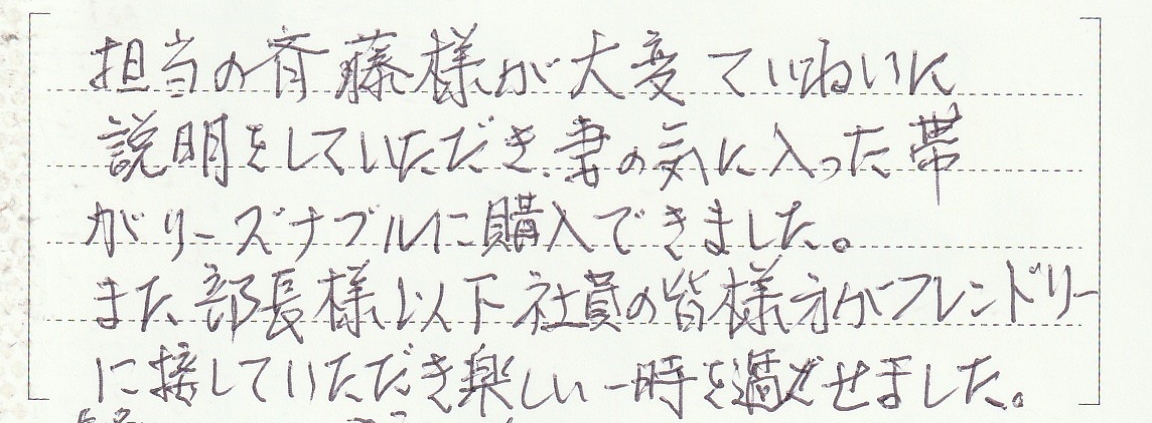 担当の斉藤様が大変ていねいに
説明をしていただき、妻の気に入った帯
がリーズナブルに購入できました。
また部長様以下社員の皆様方がフレンドリー
に接していただき楽しい一時を過ごせました。